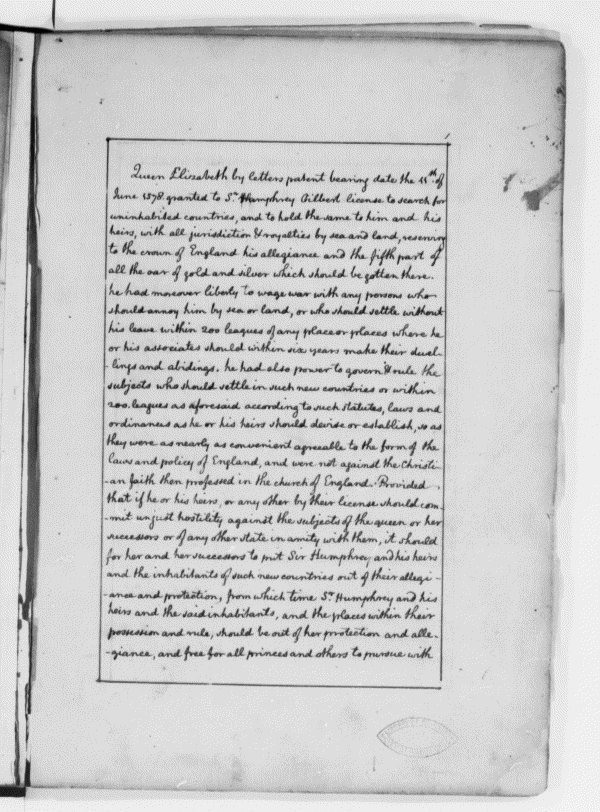 Queen Elizabeth by letters patent bearing date the 11th. of
June 1578. granted to Sr. Humphrey Gilbert license to search for
uninhabited countries, and to hold the same to him and his
heirs, with all jurisdiction & royalties by sea and land, reserving
to the crown of England his allegiance and the fifth part of
all the oar of gold and silver which should be gotten there.
he had moreover liberty to wage war with any persons who
should annoy him by sea or land, or who should settle without
his leave within 200 leagues of any place or places where he
or his associates should within six years make their dwel-
-lings and abidings. he had also power to govern & rule the
subjects who should settle in such new countries or within
200. leagues as aforesaid according to such statutes, laws and
ordinances as he or his heirs should devise or establish, so as
they were as nearly as convenient agreeable to the form of the
laws and policy of England, and were not against the Christi-
-an faith then professed in the church of England. Provided
that if he or his heirs, or any other by their license should com-
-mit unjust hostility against the subjects of the queen or her
successors or of any other state in amity with them, it should
for her and her successors to put Sir Humphrey and his heirs
and the inhabitants of such new countries out of their allegi-
-ance and protection, from which time Sr. Humphrey and his
heirs and the said inhabitants, and the places within their
possession and rule, should be out of her protection and alle-
-giance, and free for all princes and others to pursue with